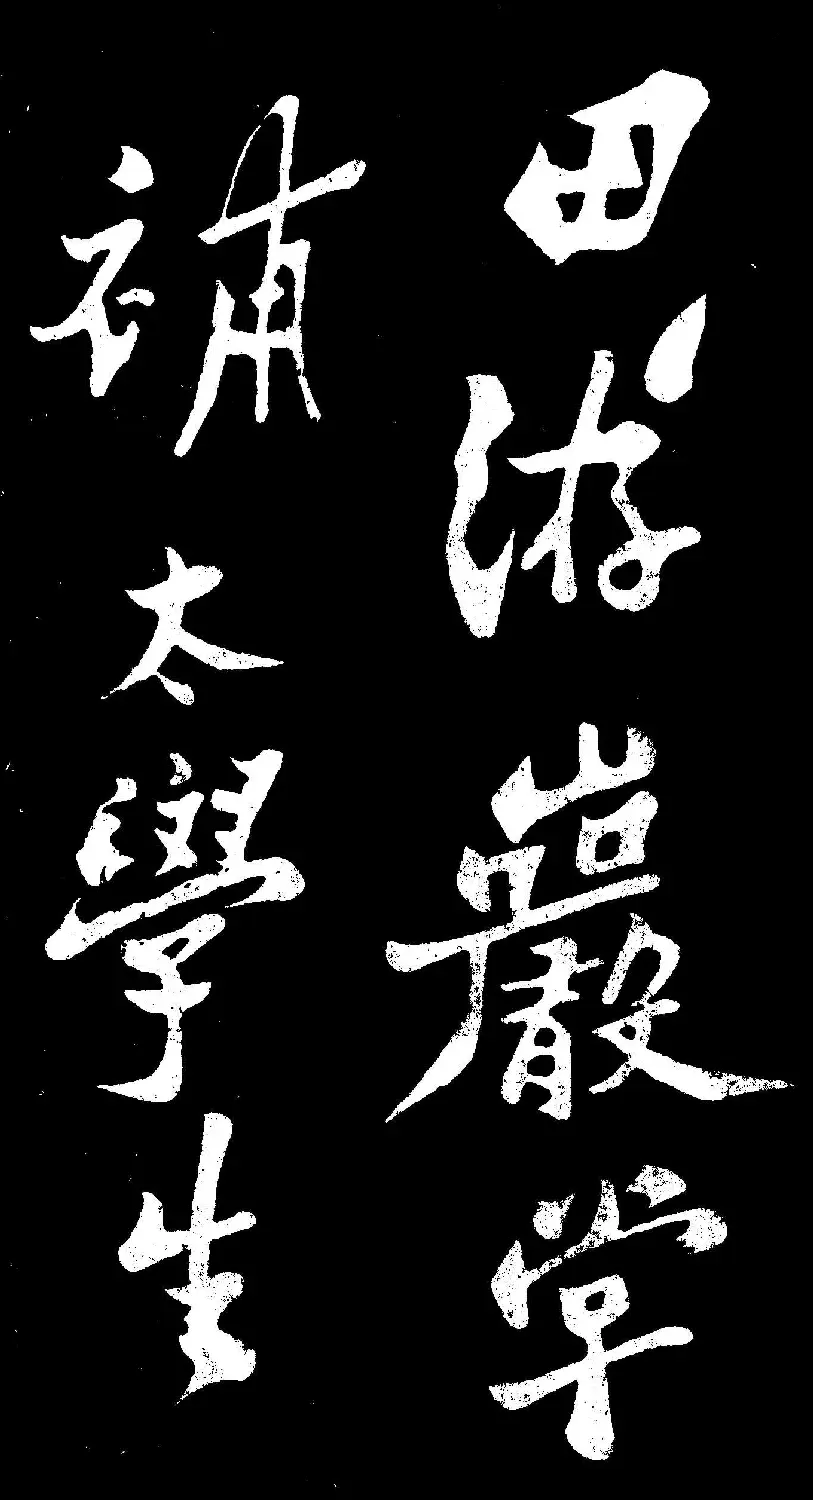 田游巖嘗
補太學生